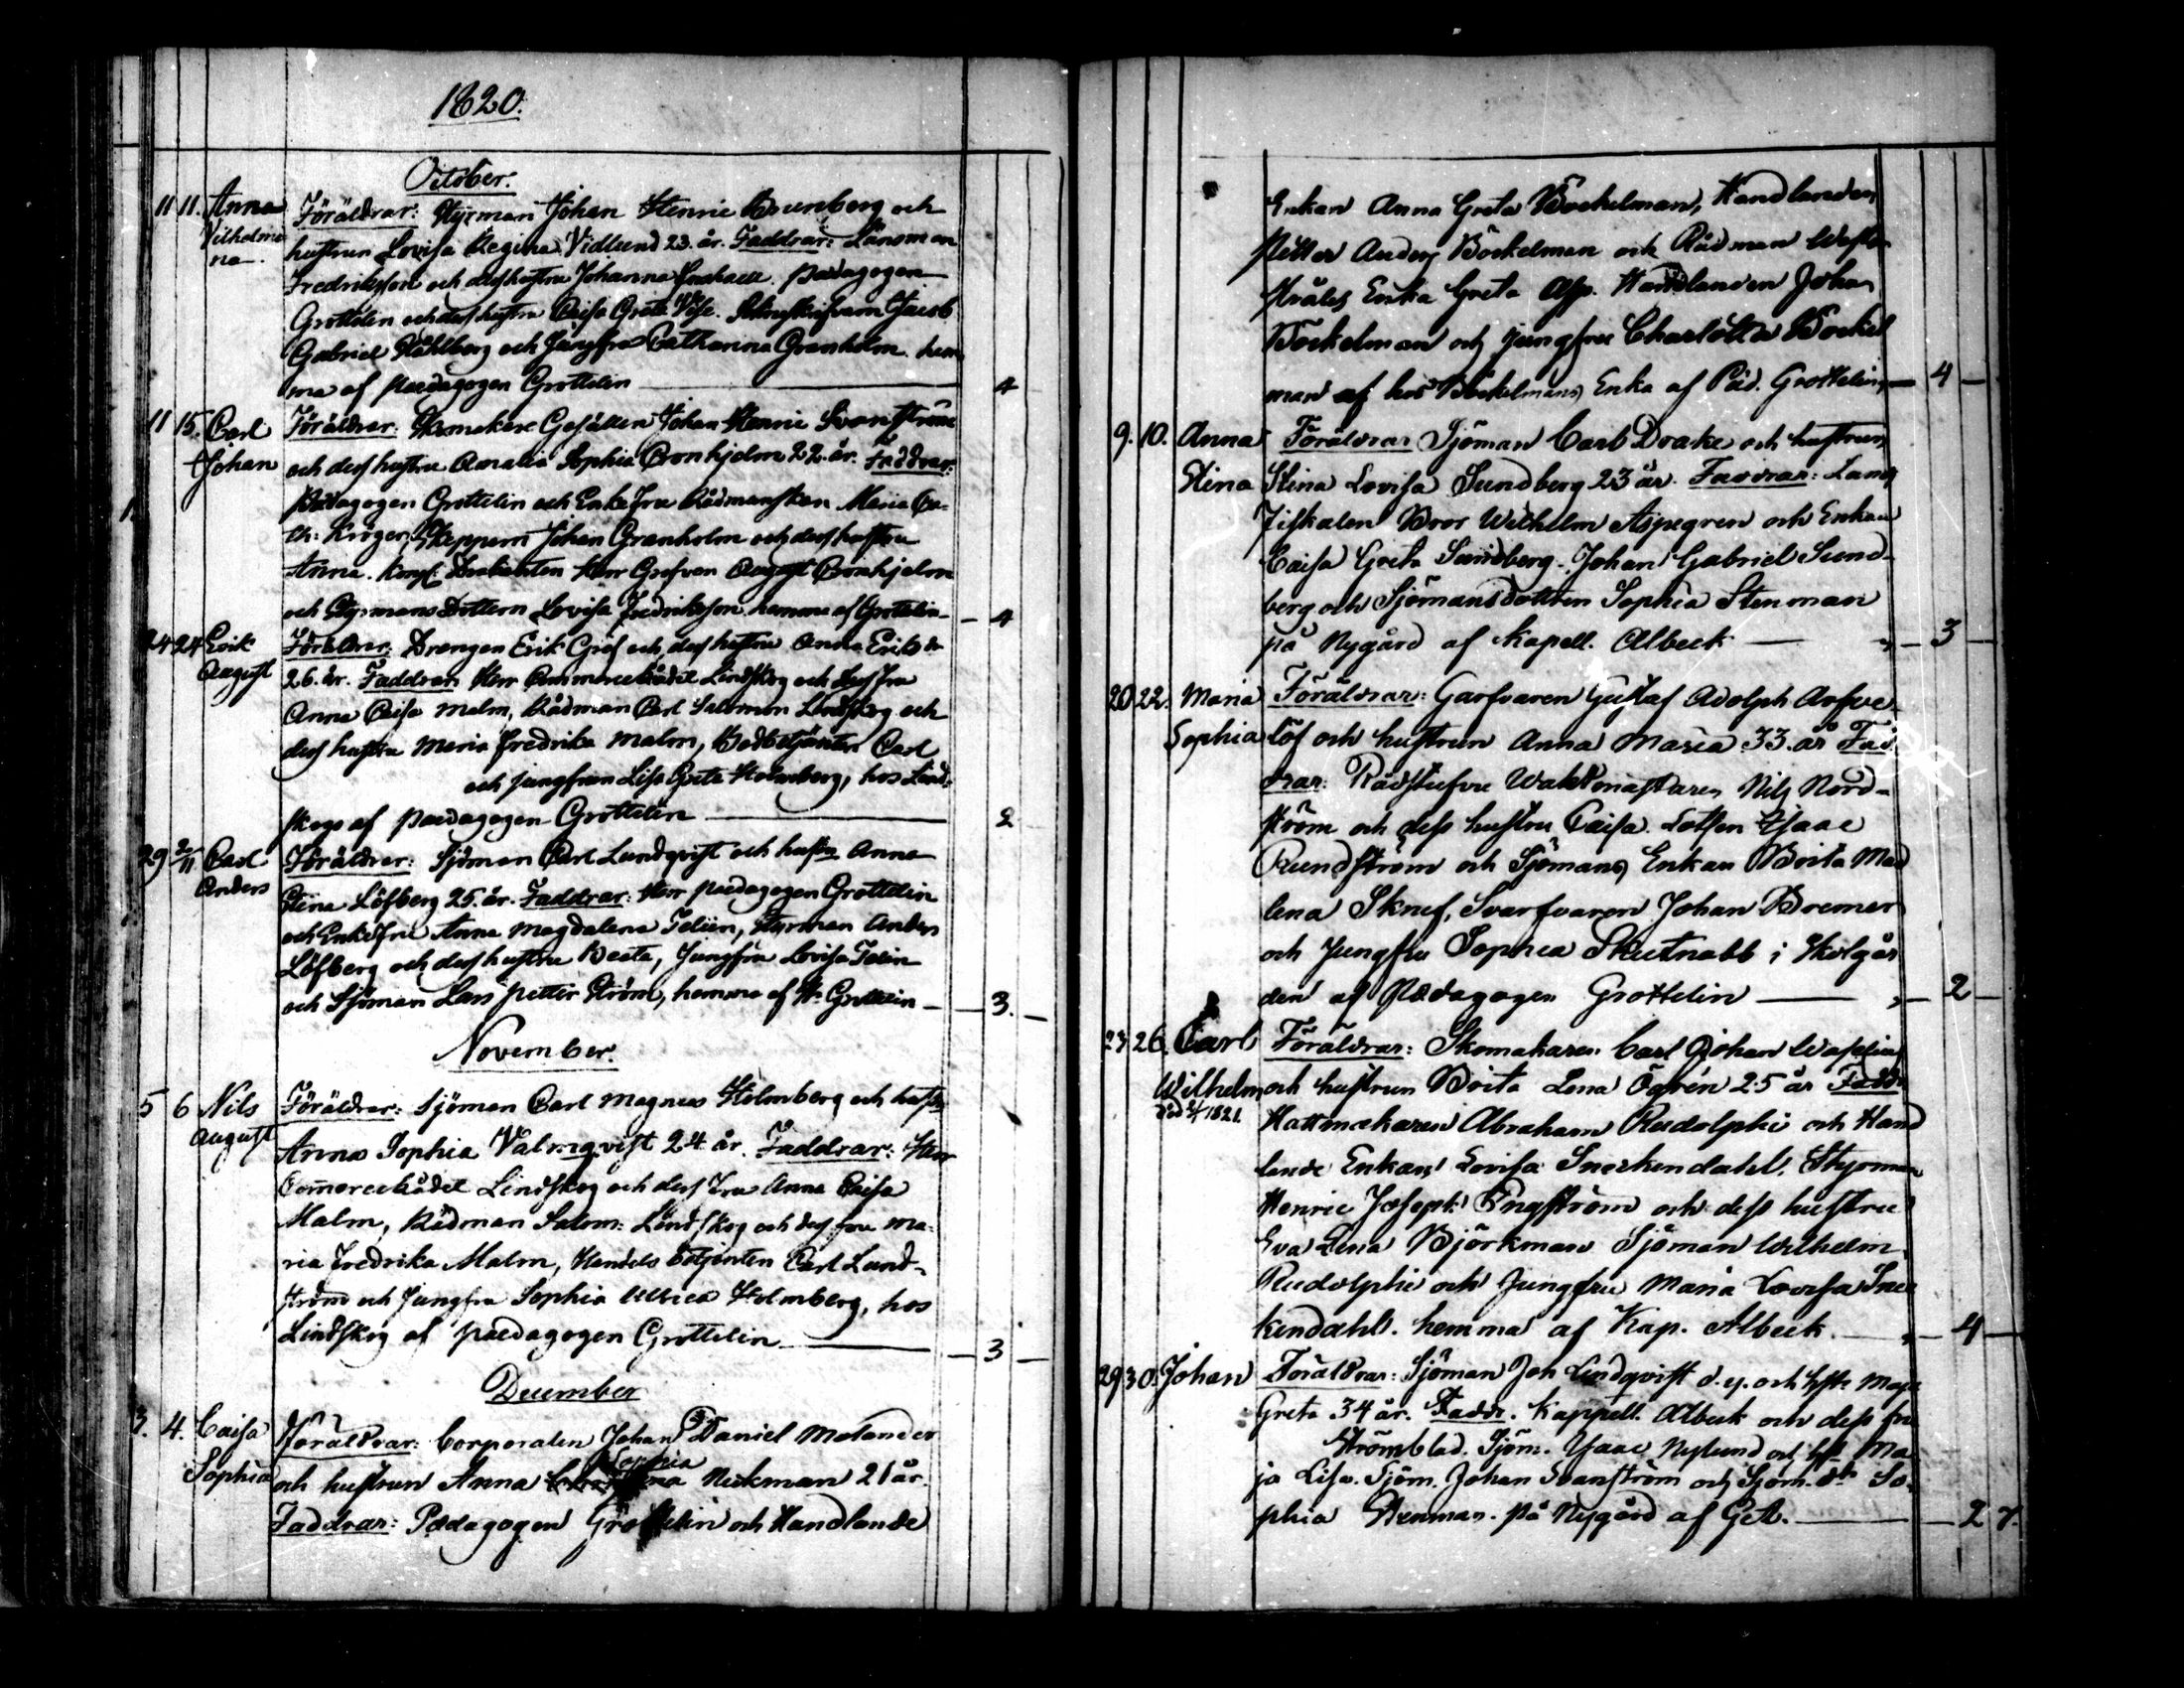 1820.
October.
11 11. Anna Föräldrar: Styrman Johan Henric Brunberg och
Vilhelmi hustrun Lovisa Regina Vidlund 23. år. Faddrar: Länsman
na. Fredriksson och dess hustru Johanna pædagogen
Grottelin och dess hustru Caisa Greta Jacob
Gabriel Ståhlberg och Jungfru Catharina Granholm. hem
ma af pædagogen Grottelin — 4
11 15. Carl Föräldrar: Skomakare Gesällen Johan Henric Svanström
Johan och dess hustru Amalia Sophia Cronhjelm 22. år. Faddrar:
Pædagogen Grottelin och Enkefru Rådmanskan Maria Ca-
th: Kröger, Skepparn Johan Granholm och dess hustru
Anna. Herr Grefven August Cronhjelm
och Styrmans Dottern Lovisa Fredriksson hemma af Grottelin — 4
24 24 Erik Föräldrar: Drängen Erik Gref och dess hustru Anna Eriksdr
August 26. år. Faddrar: Herr Commercerådet Lindskog och dess fru
Anna Caisa Malm, Rådman Carl Salomon Lindskog och
dess hustru Maria Fredrika Malm, Bodbetjänten Carl
och jungfrun Lisa Greta Holmberg, hos Lind-
skogs af pædagogen Grottelin — 2
29 2/11 Carl Föräldrar: Sjöman Carl Lundqvist och hustru Anna
Anders Stina Löfberg 25. år. Faddrar: Herr pædagogen Grottelin
och Enkefru Anna Magdalena Telin, Styrman Anders
Löfberg och dess hustru Beata, Jungfru Lovisa Telin
och Sjöman Lars Petter Ström, hemma af Hr Grottelin — 3.
November.
5 6 Nils Föräldrar: Sjöman Carl Magnus Holmberg och hustru
August Anna Sophia Valmqvist 24 år. Faddrar: Herr
Com̄ercerådet Lindskog och dess Fru Anna Caisa
Malm, Rådman Salom: Lindskog och dess fru Ma-
ria Fredrika Malm, Handels betjenten Carl Lund-
ström och Jungfru Sophia Ulrica Holmberg, hos
Lindskog af pædagogen Grottelin — 3
December
3. 4. Caisa Föräldrar: Corporalen Johan Daniel Molander
Sophia och hustrun Anna Sophia Neckman 21 år.
Faddrar: Pædagogen Grottelin och Handlande
Enkan Anna Greta Böckelman, Handlanden
Petter Anders Böckelman och Rådman
Enka Greta Alp. Handlanden Johan
Bockelman och jungfru Charlotta Bockel
man af hos Böckelmans Enka af Päd. Grottelin — 4
9. 10. Anna Föräldrar Sjöman Carl Drake och hustrun
Stina Stina Lovisa Sundberg 23 år. Faddrar: Lands
Fiskalen Bror Wilhelm Aspegren och Enkan
Caisa Greta Sundberg. Johan Gabriel Sund-
berg och Sjömansdottren Sophia Stenman
på Nygård af Kapell. Albeck — 3
20 22. Maria Föräldrar: Garfvaren Gustaf Adolph Arfve
Sophia löf och hustrun Anna Maria 33. år Fad
drar: Rådstufvu Waktmästaren Nils Nord-
ström och dess hustru Caisa. Lotsen Isaac
Rundström och Sjömans Enkan Brita Mad
lena Skruf, Svarfvaren Johan Bremer
och Jungfru Sophia Skutnabb i Skolgår
den af Pædagogen Grottelin — 2
23 26. Carl Föräldrar: Skomakaren Carl Johan Waselius
Wilhelm och hustrun Brita Lena Ögrén 25 år Fadd:
Död 1821. Hattmakaren Abraham Rudolphi och Hand
lande Enkan Lovisa Sneckendahl. Styrman
Henric Joseph Engström och dess hustru
Eva Lena Björkman Sjöman Wilhelm
Rudolphi och Jungfru Maria Lovisa Snec
kendahl. hemma af Kap. Albeck. — 4
29 30. Johan Föräldrar: Sjöman Joh Lindqvist d. y. och hstr Maja
Greta 34 år. Faddr. Kappell. Albeck och dess fru
Strömblad. Sjöm. Isaac Nylund och hst Ma
ja Lisa. Sjöm. Johan Svanström och Sjöm. dr So-
phia Stenman. på Nygård af GA. — 2 7.